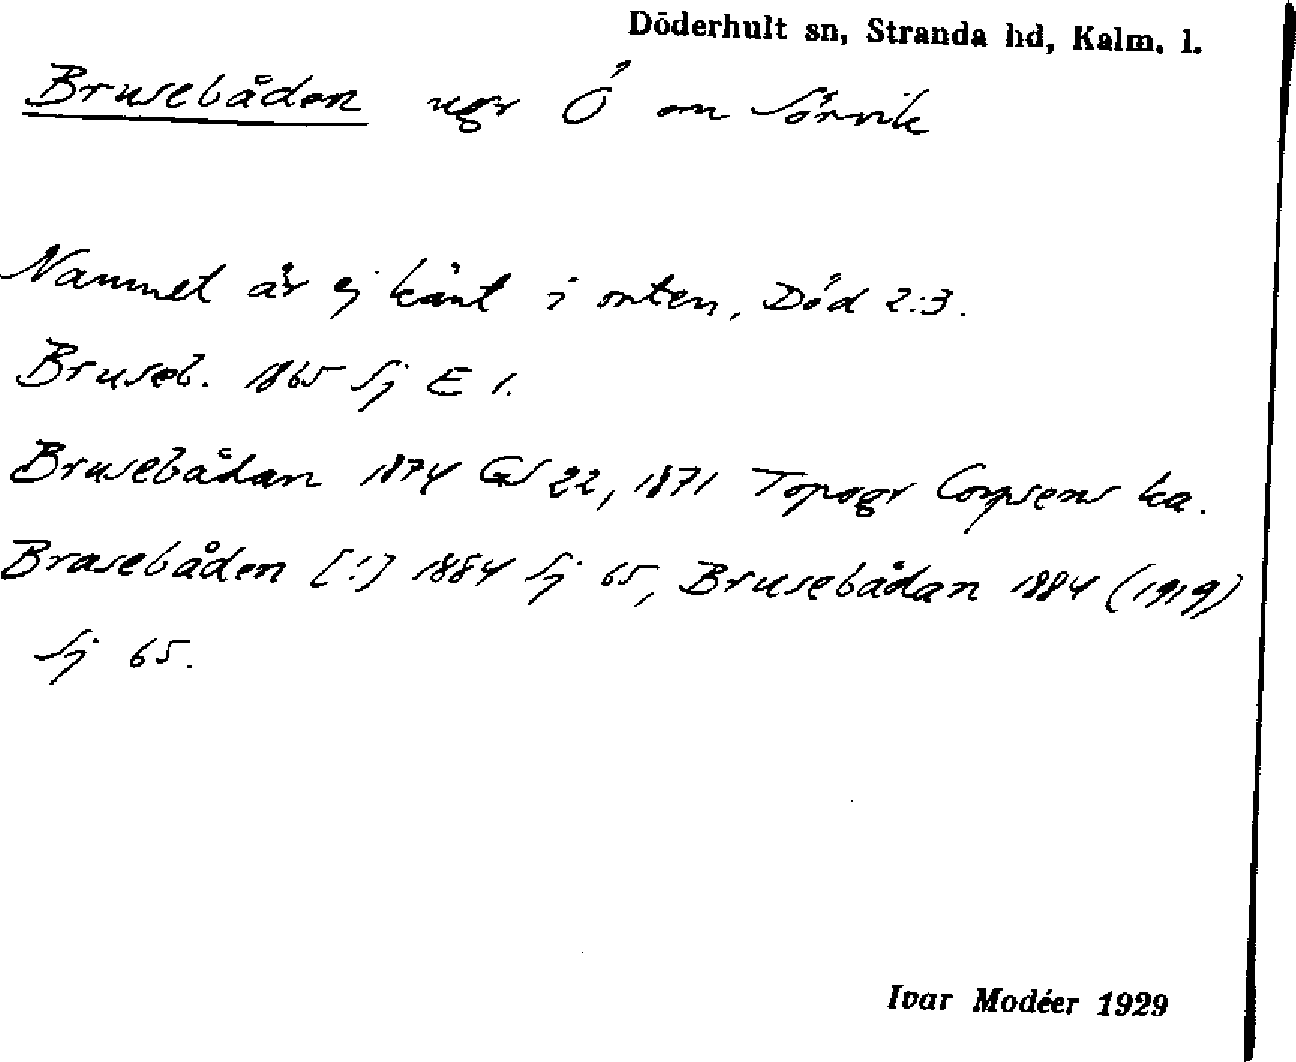 Döderhult sn, Stranda hd, Kalm. l.
Brusebådan ugr Ö om Sörvik
Namnet är ej känt i orten, Död 2:3.
Bruseb. 1865 Sj E 1.
Brusebådan 1874 GS 22, 1871 Topogr Corpsens ka.
Brasebåden [!] 1884 Sj 65, Brusebådan 1884 (1919)
Sj 65.
Ivar Modéer 1929